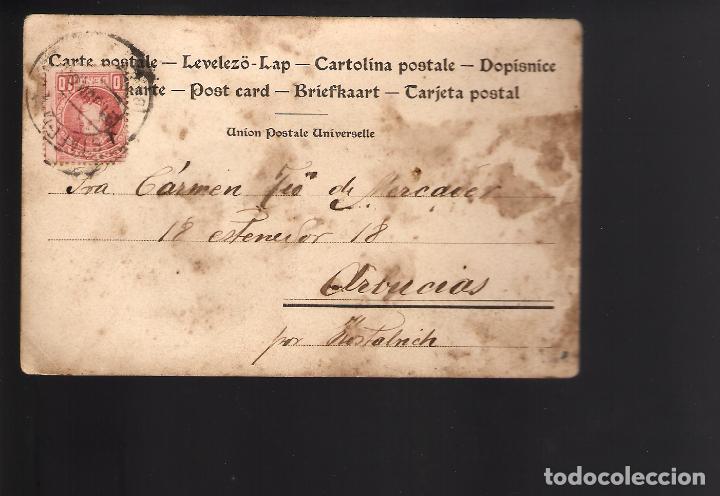 Carte postale — Levelező-Lap — Cartolina postale — Dopisnice
karte — Post card — Briefkaart — Tarjeta postal
Union Postale Universelle
Sra Cármen de Mercader
18 estenedor 18
Arbucias
por Hostalrich
todocoleccion